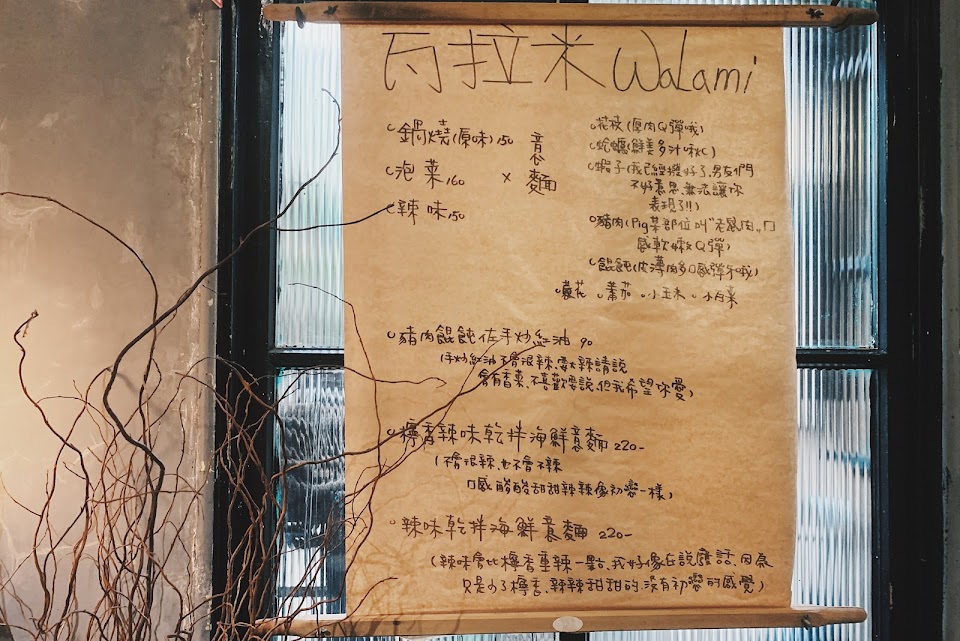 瓦拉米 Walami
鍋燒(原味)150
泡菜160 × 意麵
辣味150
花枝(厚肉Q彈哦)
蛤蠣(鮮美多汁啾C)
蝦子(我已經撥好了,男友們
不好意思,無法讓你
表現了!!)
豬肉(Pig某部位叫"老鼠肉",口
感軟嫩Q彈)
餛飩(皮薄肉多口感彈牙哦)
花 番茄 小玉米 小白菜
豬肉餛飩佐手炒紅油 90
(手炒紅油不會很辣,要大辣請說
會有香菜,不喜歡要說,但我希望你愛)
檸香辣味乾拌海鮮意麵 220-
(不會很辣,也不會不辣
口感酸酸甜甜辣辣像初戀一樣)
辣味乾拌海鮮意麵 220-
(辣味會比檸香重辣一點,我好像在說廢話,因為
只是少了檸香,辣辣甜甜的,沒有初戀的感覺)